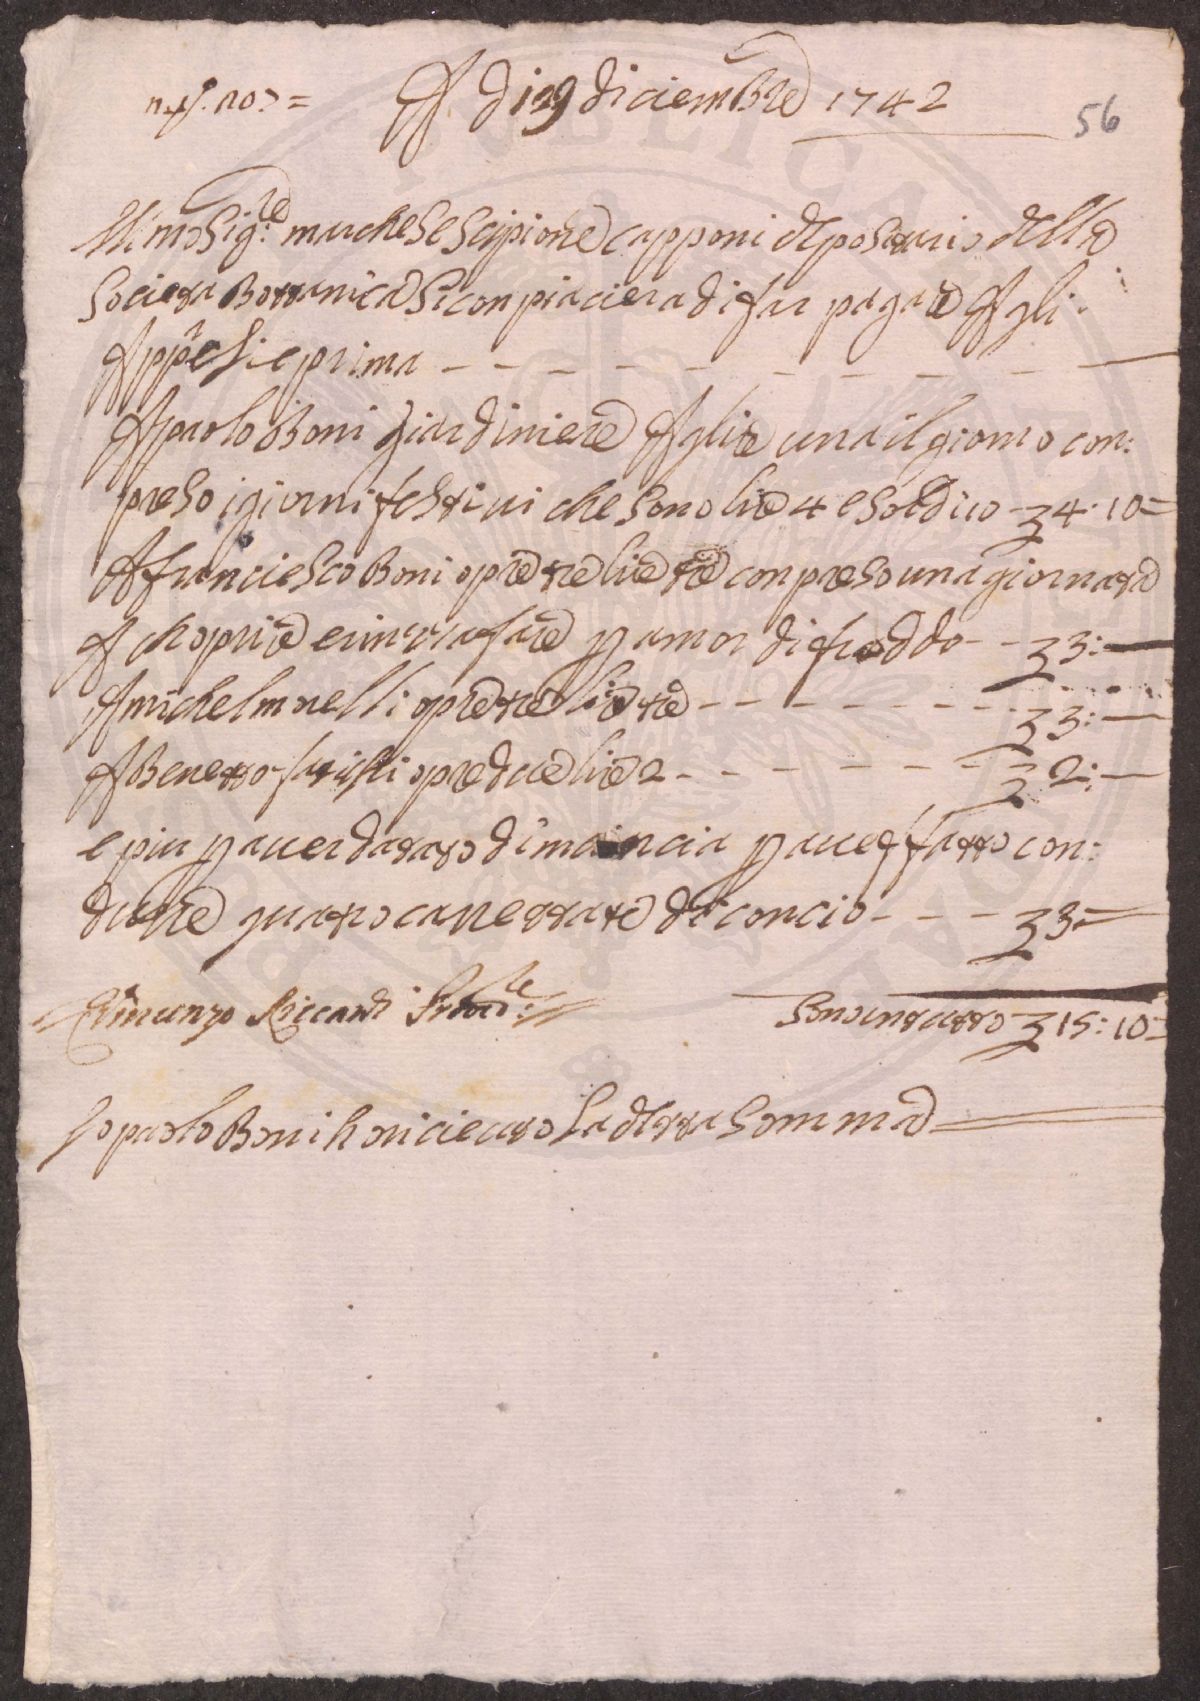 A di 29 diciembre 1742
56
Ill.mo Sig.re marchese Scipione capponi depositario della
Societa Bottanica Si conpiaciera di far pagare Agli
App.e Si e prima
A paolo Boni giardiniere A lire una il giorno con:
preso i giorni festivi che Sono lire 4 e Soldi 10 - 4. 10 =
A franciesco Boni opre tre lire tre conpreso una giornata
A choprire e rinvoltare p amor di freddo - 3:
A michel nelli opre tre lire tre - 3:
A Benetto opre due lire 2 - 2:
e piu p aver datato di mancia p avef fatto con:
durre quatro carrettate di concio - 3 =
Vincenzo Riccardi Provd.re
Sono in tutto 15: 10 =
Io paolo Boni ho riceuto La detta Somma